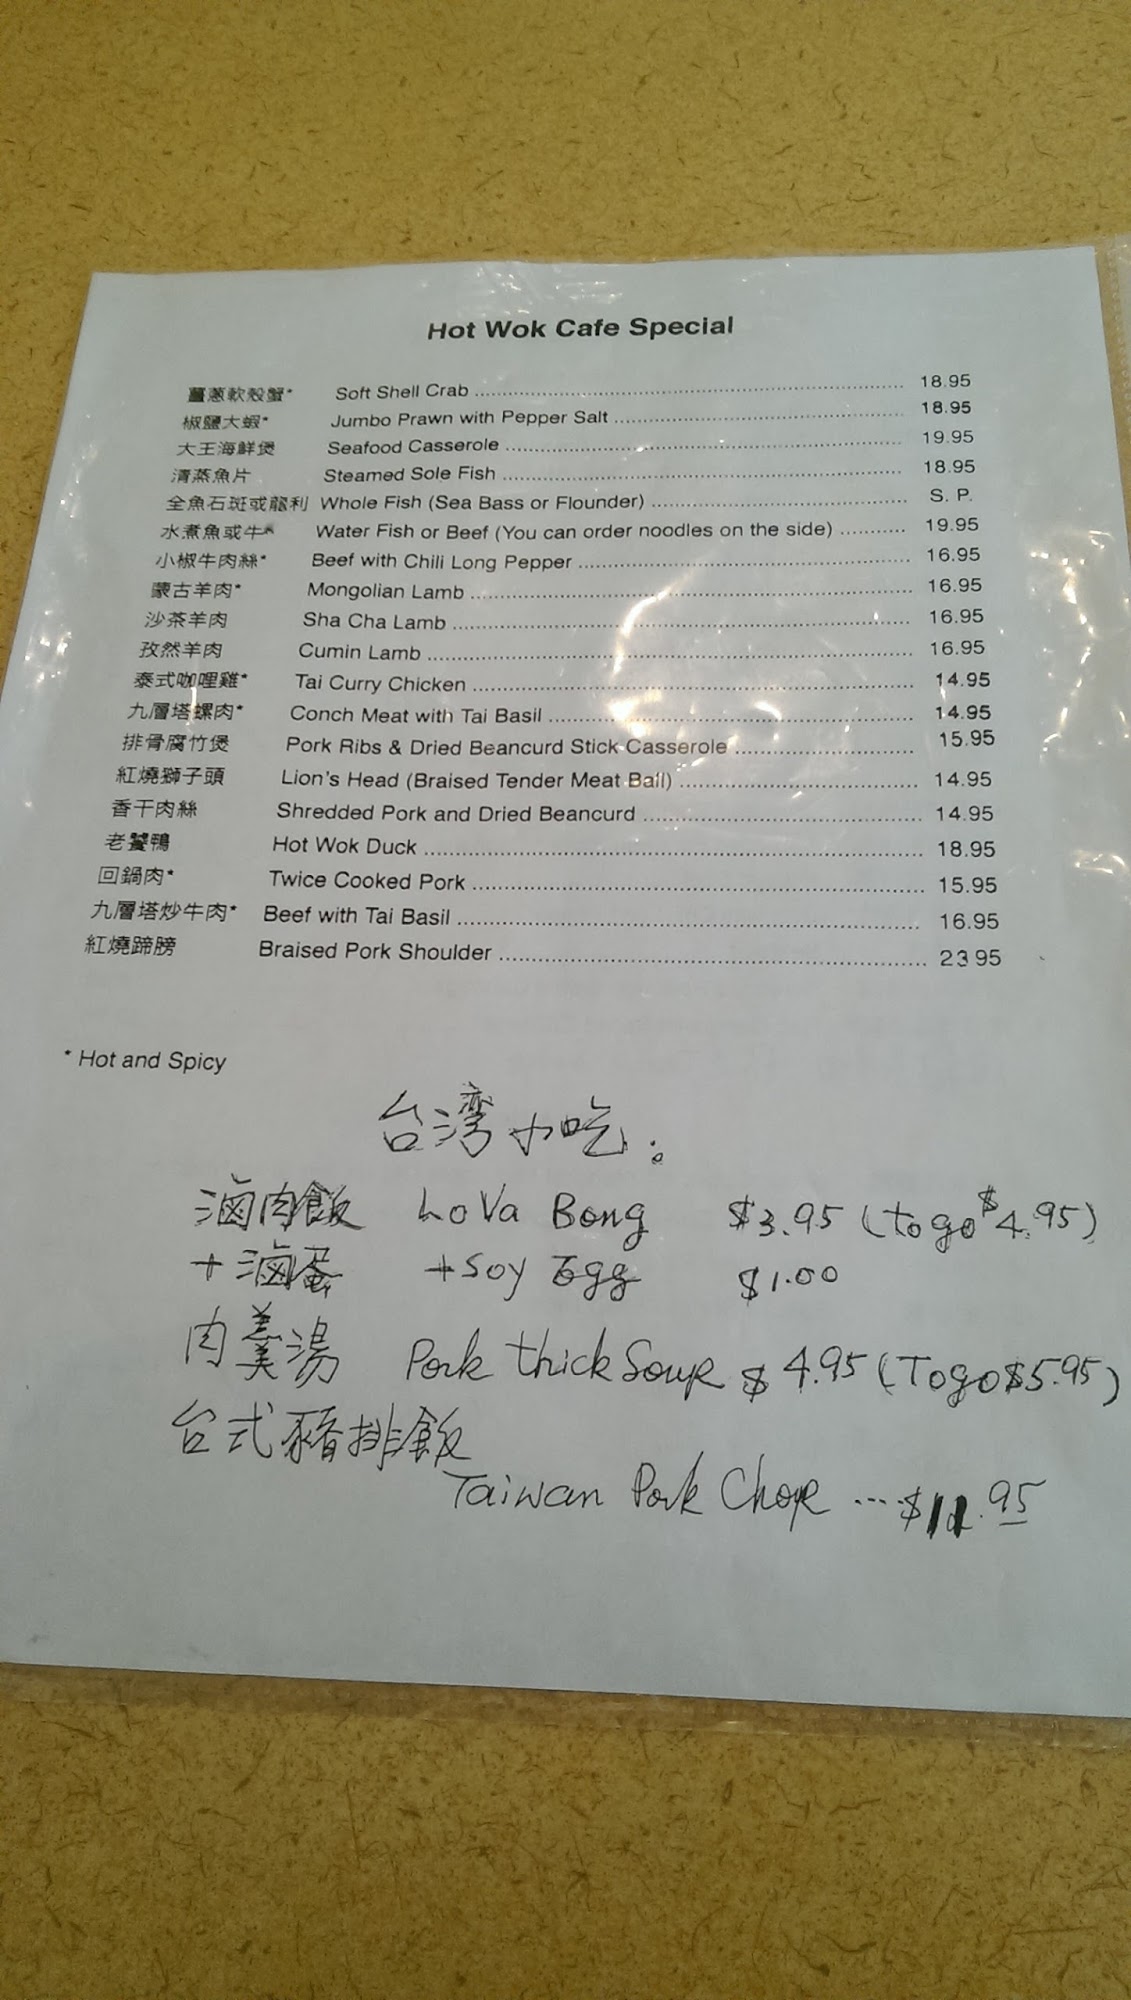 Hot Wok Cafe Special
薑蔥軟殼蟹* Soft Shell Crab 18.95
椒鹽大蝦* Jumbo Prawn with Pepper Salt 18.95
大王海鮮煲 Seafood Casserole 19.95
清蒸魚片 Steamed Sole Fish 18.95
全魚石斑或龍利 Whole Fish (Sea Bass or Flounder) S. P.
水煮魚或牛* Water Fish or Beef (You can order noodles on the side) 19.95
小椒牛肉絲* Beef with Chili Long Pepper 16.95
蒙古羊肉* Mongolian Lamb 16.95
沙茶羊肉 Sha Cha Lamb 16.95
孜然羊肉 Cumin Lamb 16.95
泰式咖哩雞* Tai Curry Chicken 14.95
九層塔螺肉* Conch Meat with Tai Basil 14.95
排骨腐竹煲 Pork Ribs & Dried Beancurd Stick Casserole 15.95
紅燒獅子頭 Lion's Head (Braised Tender Meat Ball) 14.95
香干肉絲 Shredded Pork and Dried Beancurd 14.95
老饕鴨 Hot Wok Duck 18.95
回鍋肉* Twice Cooked Pork 15.95
九層塔炒牛肉* Beef with Tai Basil 16.95
紅燒蹄膀 Braised Pork Shoulder 23.95
* Hot and Spicy
台湾小吃:
滷肉飯 LoVa Bong $3.95 (to go $4.95)
+滷蛋 +Soy Egg $1.00
肉羹湯 Pork thick Soup $4.95 (To go $5.95)
台式豬排飯
Taiwan Pork Chop ... $11.95